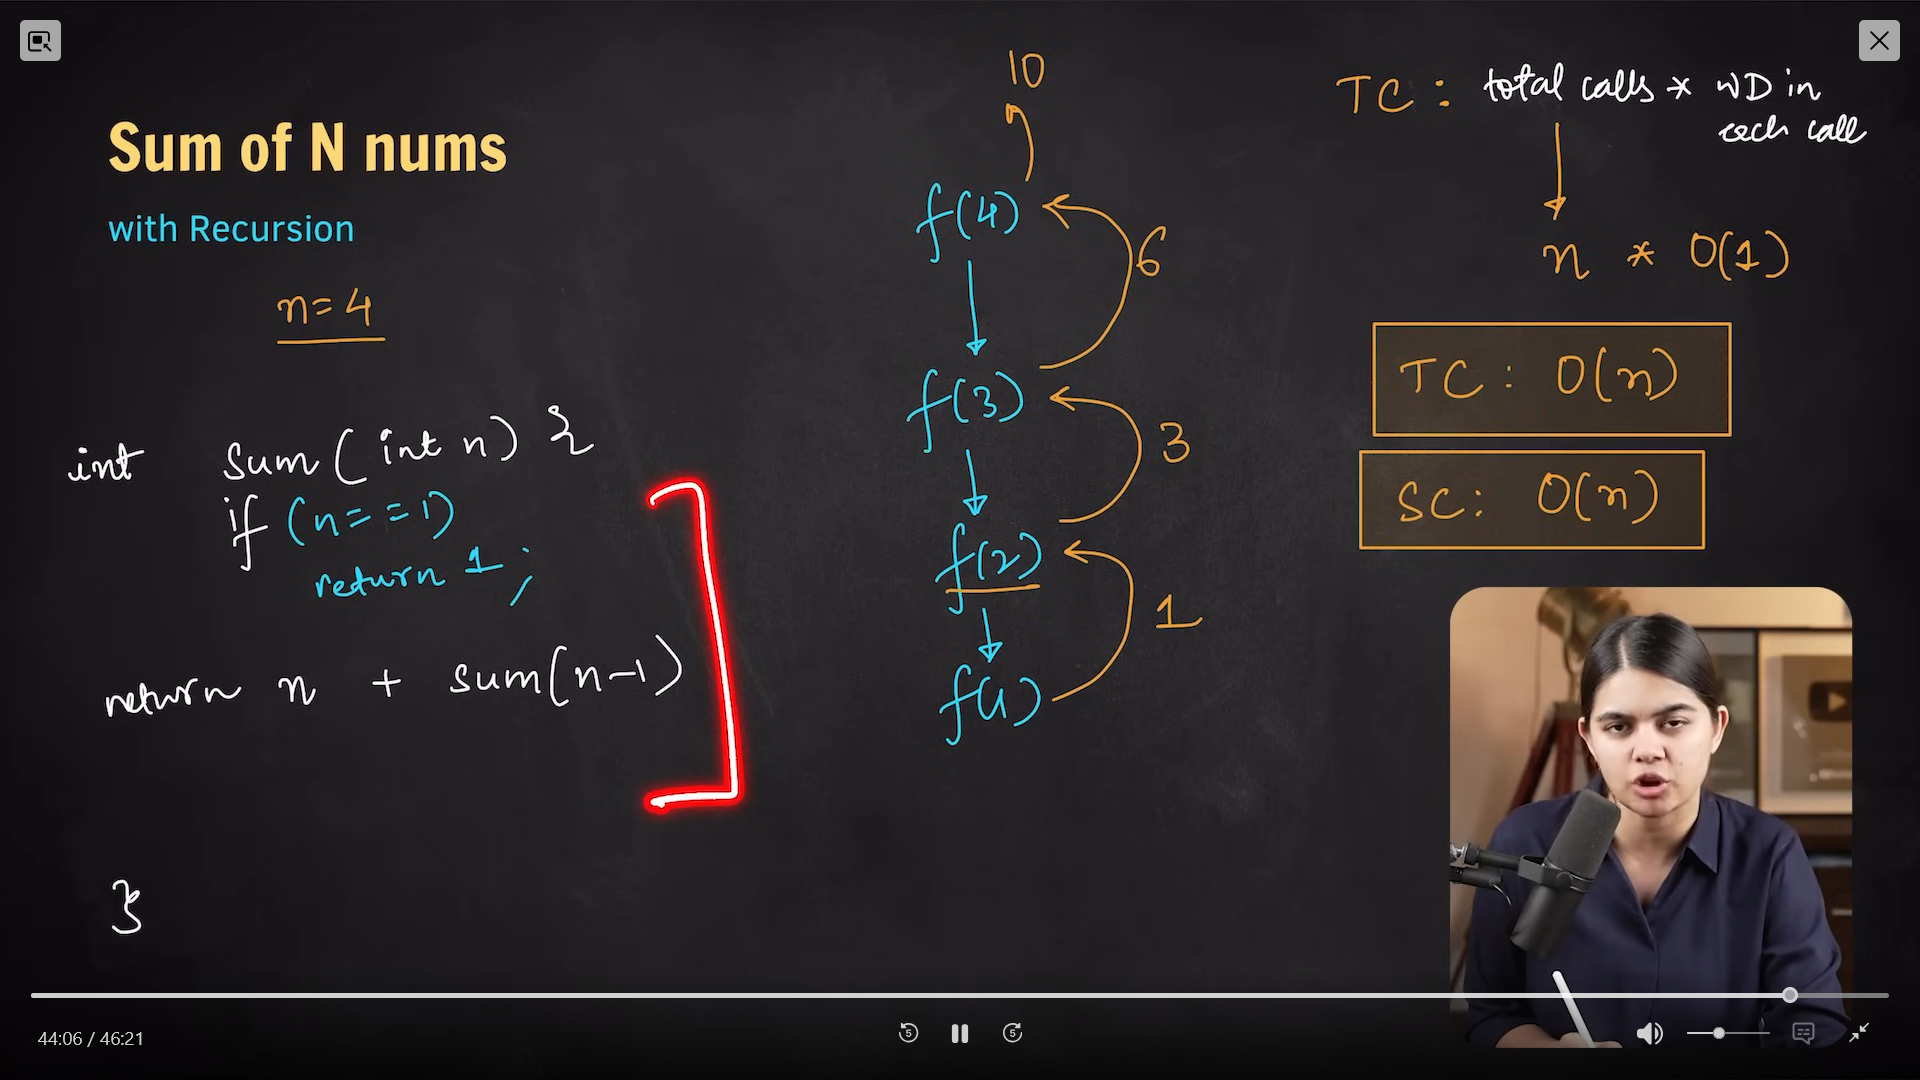 Sum of N nums
with Recursion
n=4
int sum(int n) {
if (n==1)
return 1;
return n + sum(n-1)
}
10
f(4)
6
f(3)
3
f(2)
1
f(1)
TC: total calls * WD in
each call
n * O(1)
TC: O(n)
SC: O(n)
44:06 / 46:21
5
5